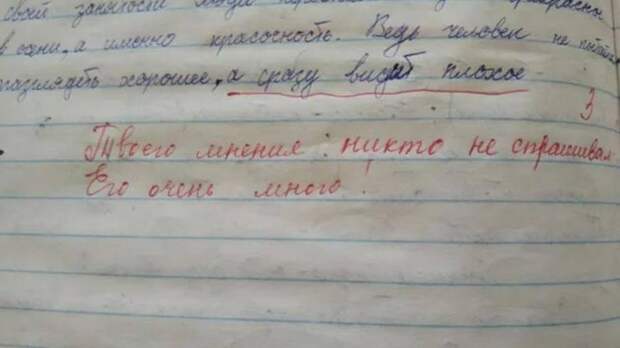 своей занятости люди
в жизни, а именно красочность. Ведь человек не
разглядеть хорошее, а сразу видит плохое
3
Твоего мнения никто не спрашивал
Его очень много!